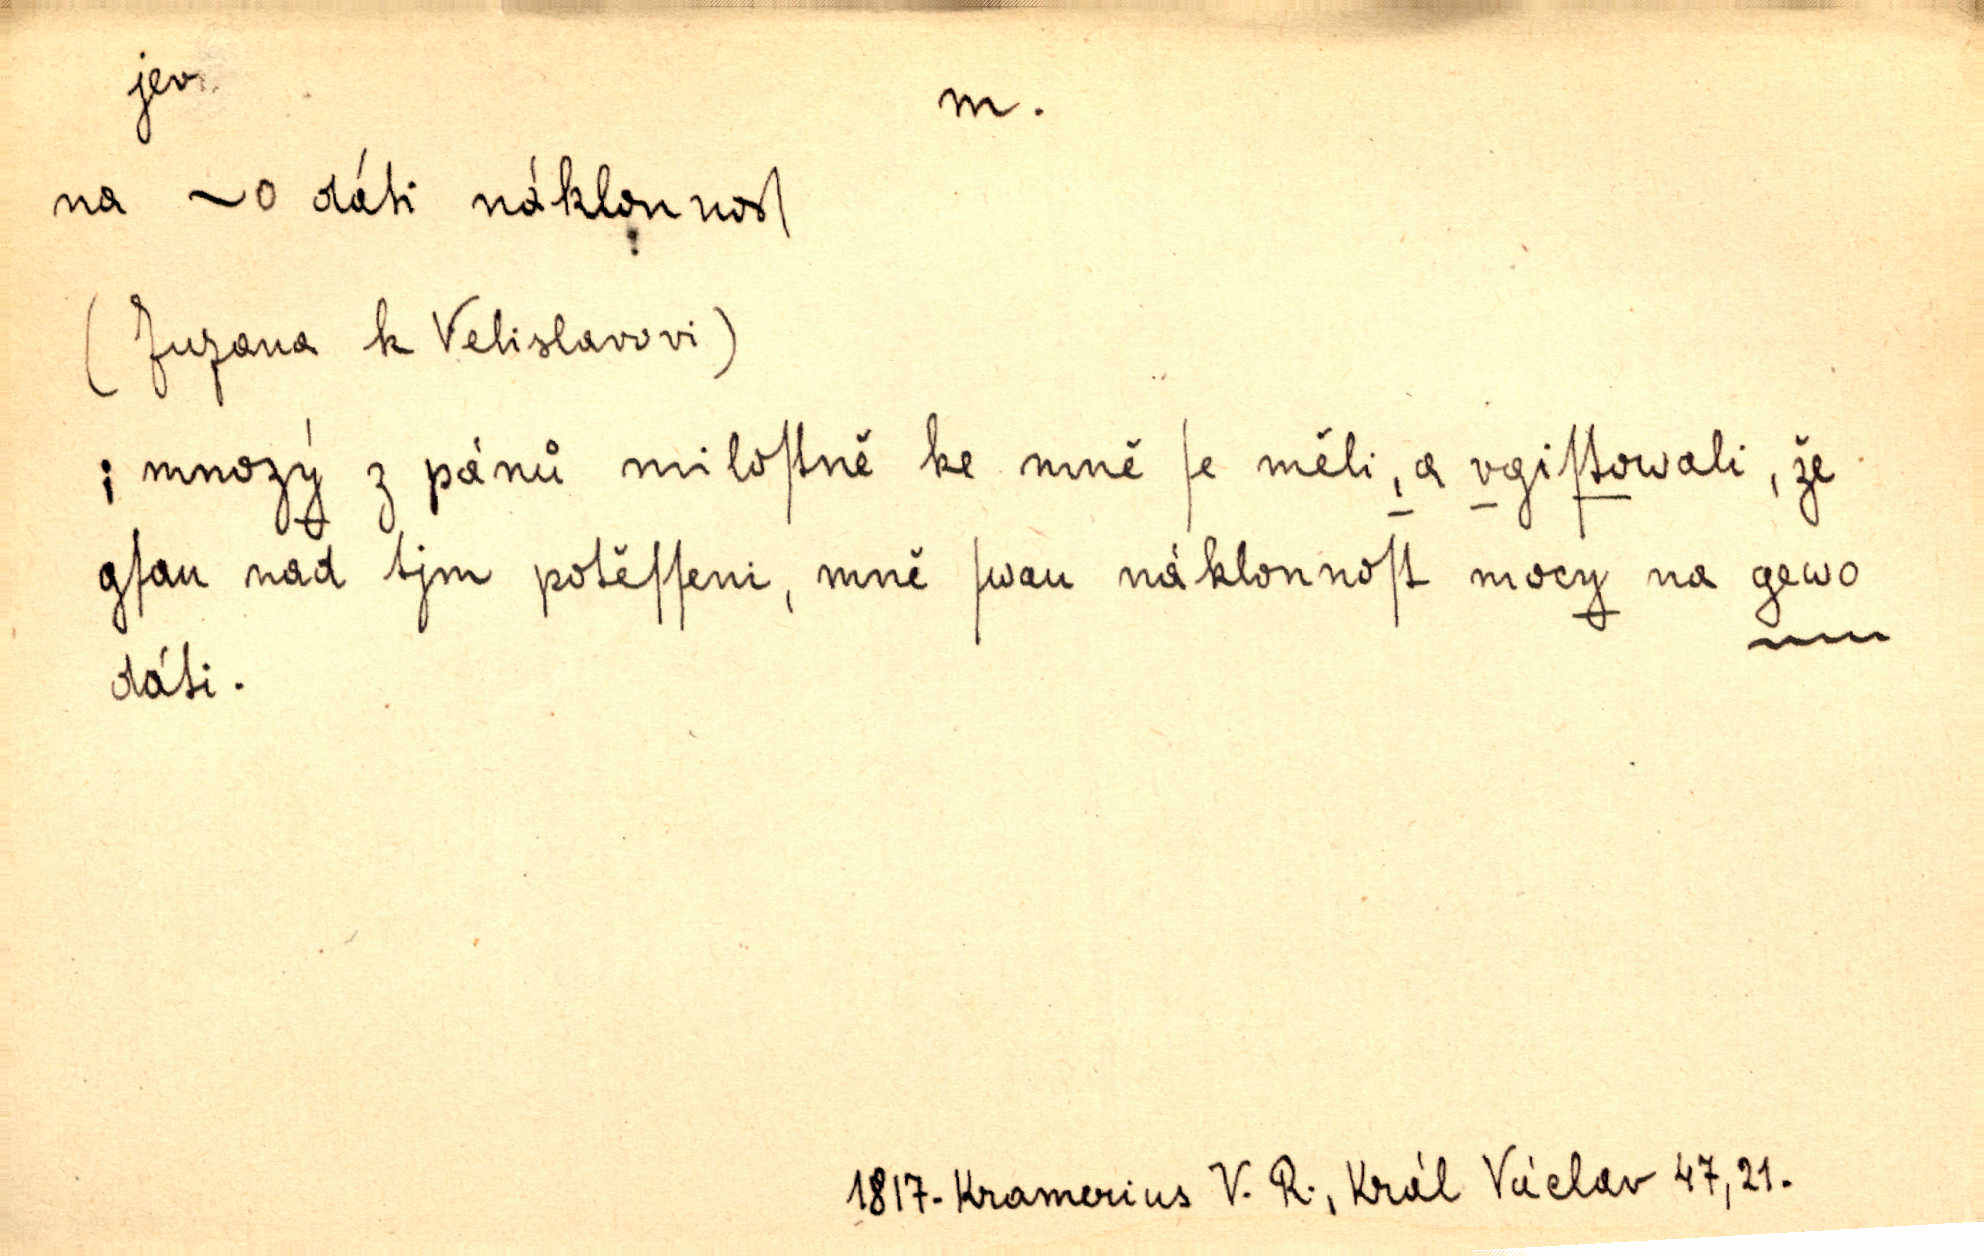 jev m.
na ~o dáti náklonnost
(Zuzana k Velislavovi)
; mnozý z pánů miloſtně ke mně ſe měli, a vgiſtowali, že
gſau nad tjm potěſſeni, mně ſwau náklonnoſt mocy na gewo
dáti.
1817. Kramerius V. R., Král Václav 47, 21.